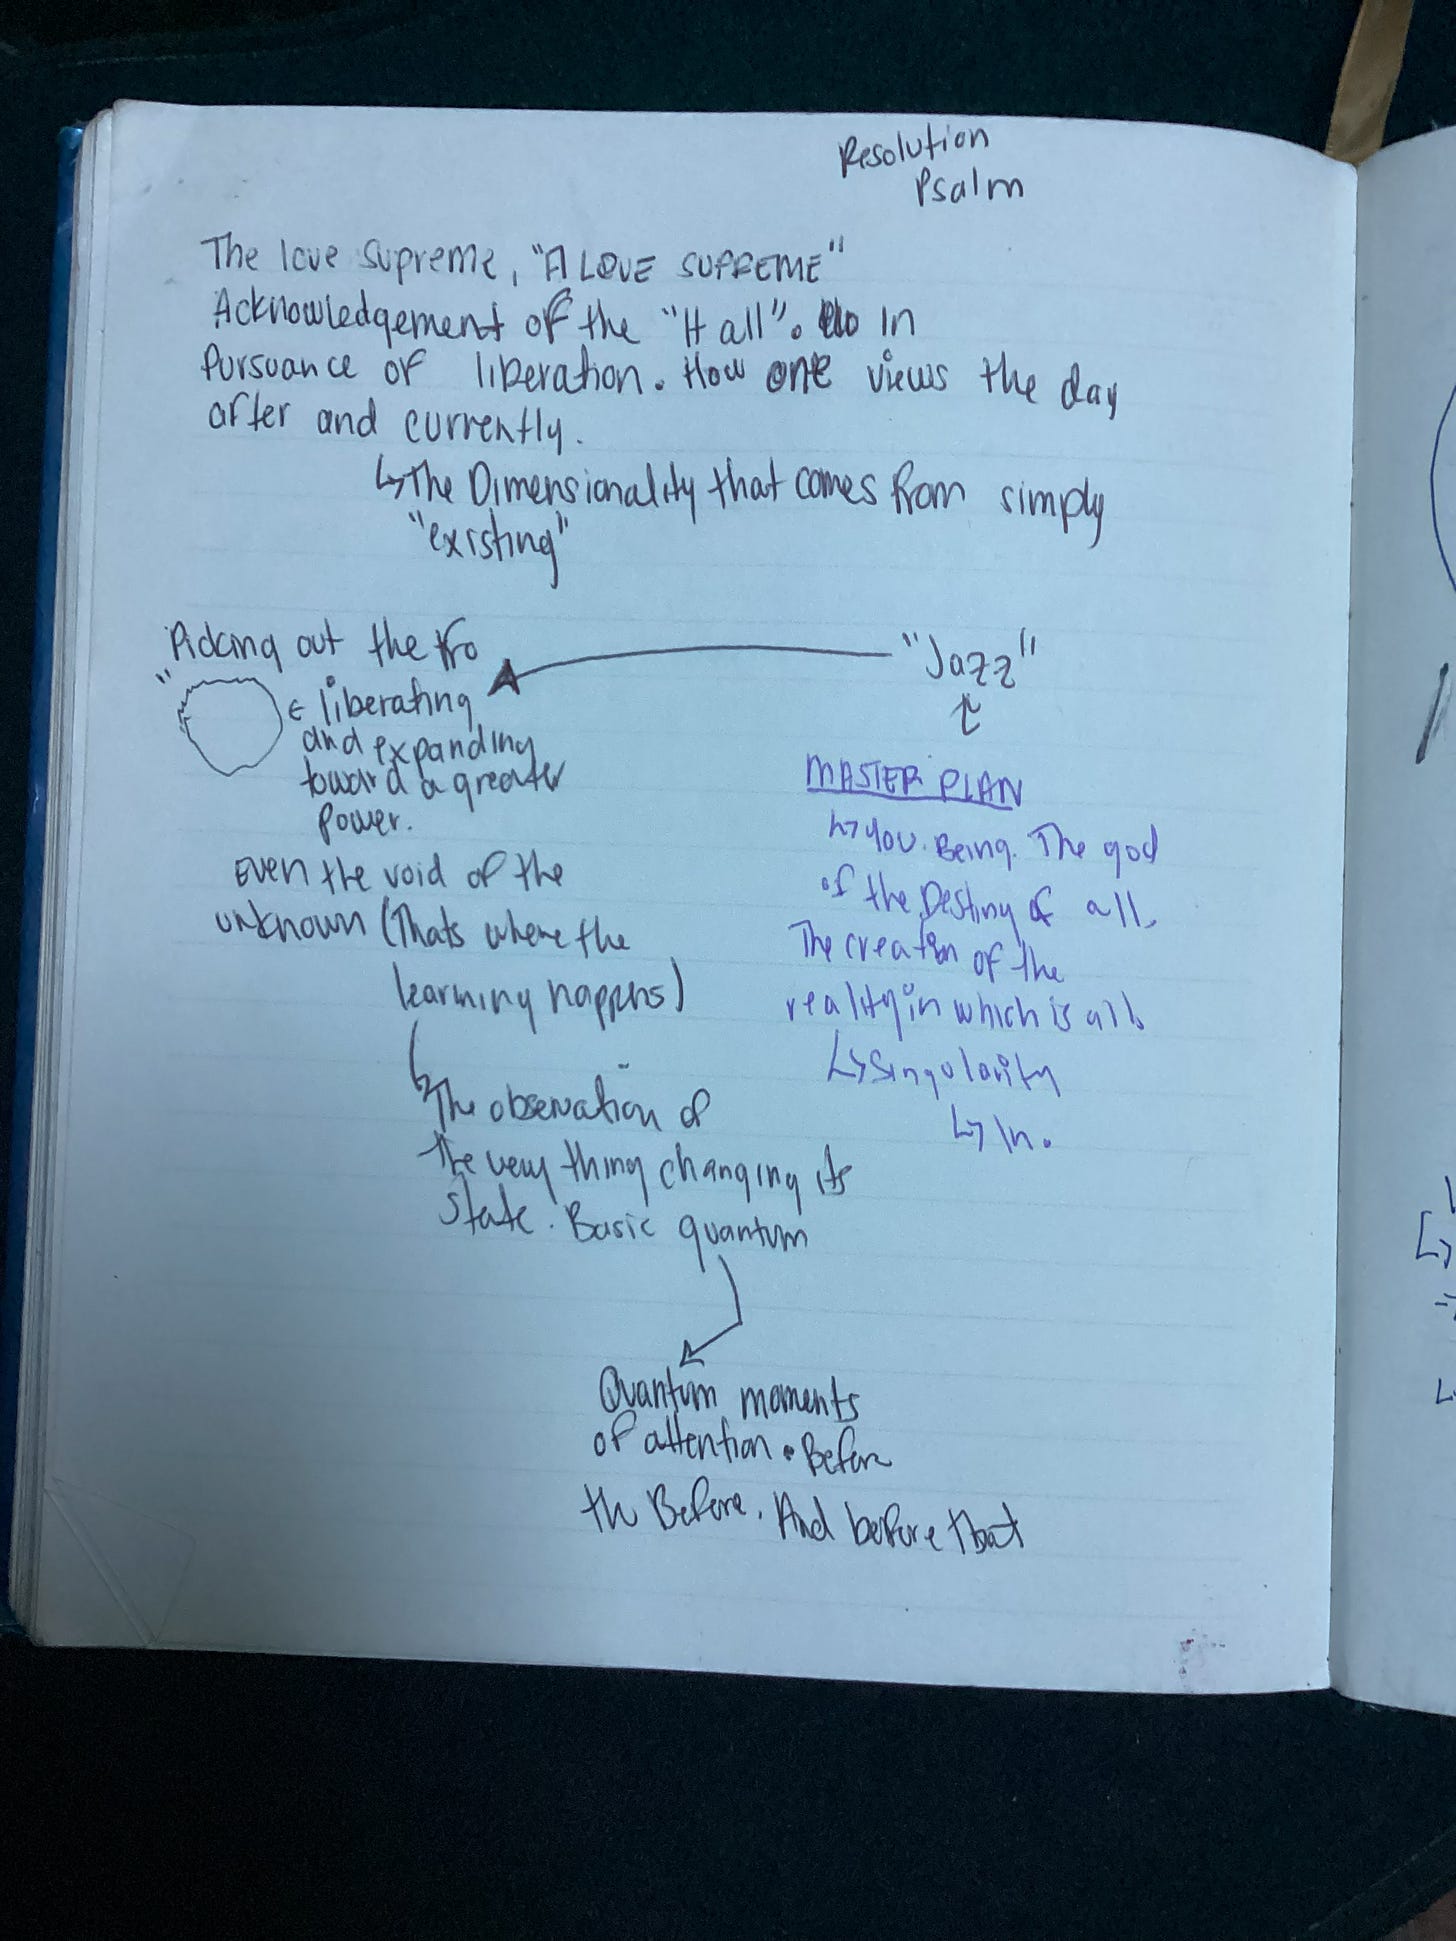 Resolution
Psalm
The love supreme, "A LOVE SUPREME"
Acknowledgement of the "It all". In
Pursuance of liberation. How one views the day
after and currently.
↳ The Dimensionality that comes from simply
"existing"
Picking out the fro
"Jazz"
liberating
and expanding
toward a greater
power.
even the void of the
unknown (Thats where the
learning happens)
↳ The observation of
the very thing changing its
state. Basic quantum
Quantum moments
of attention. Before
the Before. And before that
MASTER PLAN
↳ You. Being. The god
of the Destiny of all.
The creation of the
reality in which is all.
↳ Singularity
↳ In.